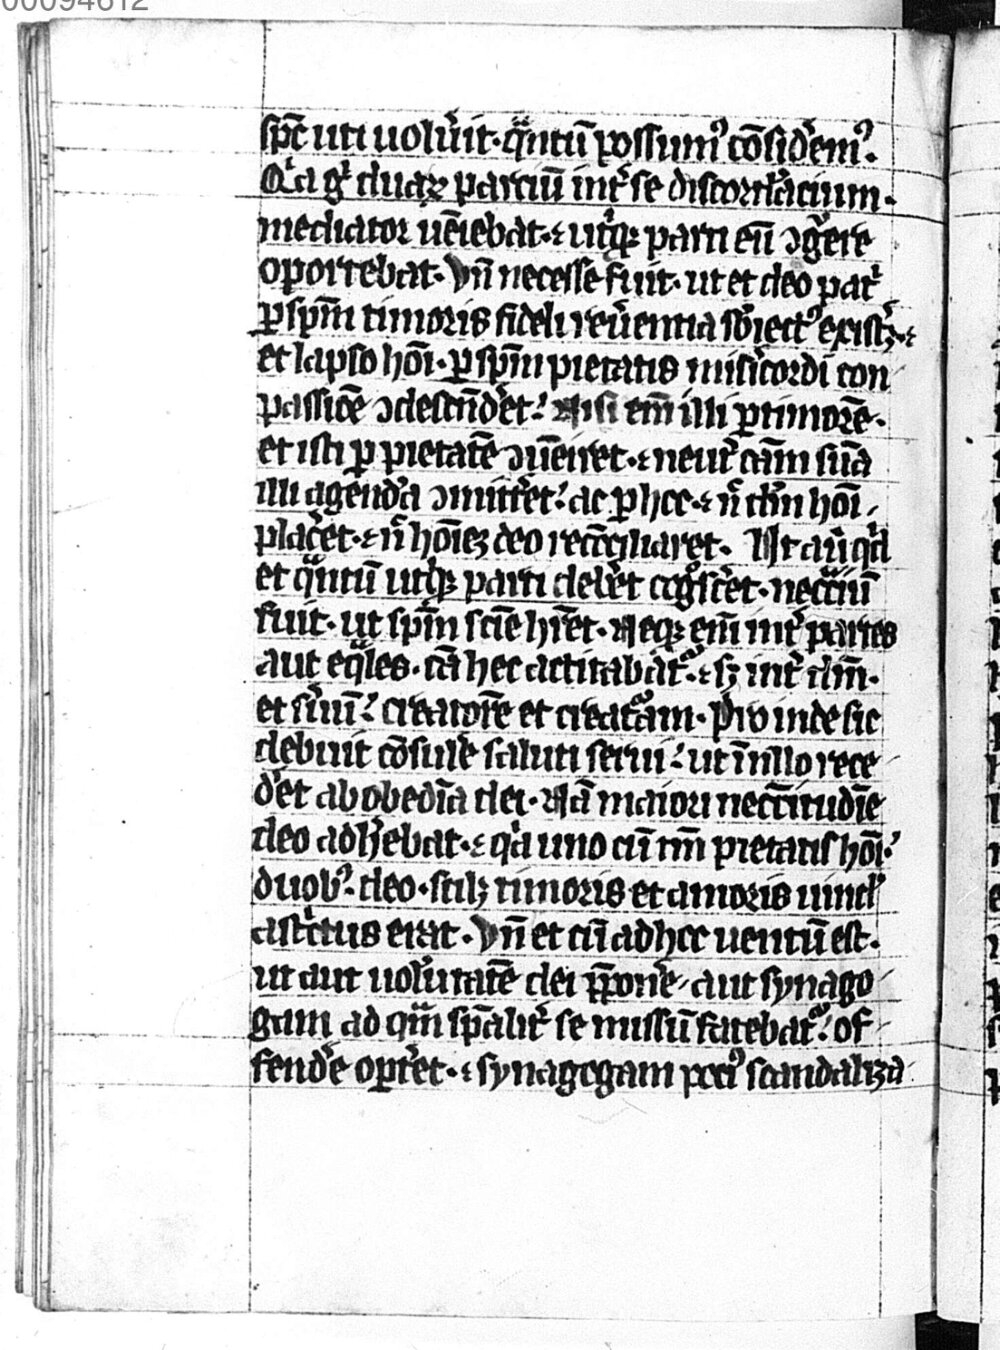 00094612
spc̄ uti uolu̾it· qͣntū possumꝰ cōsid̾emꝰ.
Qͥa gͥ duaꝝ parciū int̾ se discordācium.
mediator uēiebat· ⁊ ut̾qꝫ parti eū ↄgͣere
oportebat· Vn̄ necesse fuit· ut et deo patͥ
ꝑ spm̄ timoris fideli reu̾entia sbͥiectꝰ existꝫ̾· ⁊
et lapso hōi· ꝑ spm̄ pietatis misͥcordi con
passiōe ↄdescn̄d̾et· Nisi em̄ illi ꝑ timorē·
et isti ꝑ pietatē ↄuēiret· ⁊ neut̾ cām suā
illi agend̾a ↄmitt̾et· ac ꝑ hoc· ⁊ n̄ dn̄i hōi
plac̾et· ⁊ n̄ hōiez deo recōciliaret· Ut aūt qͥd
et qͣntū ut̾qꝫ parti deb̾et cogͦsc̾et· necc̄iū
fuit· ut spm̄ scīe hr̄et· Neqꝫ em̄ int̾ partes
aut eqͣles· cā hec actitabat̾· ⁊ sꝫ int̾ dn̄m·
et s̾uū· creatorē et creatͣam· Proinde sic
debuit cōsule̾ saluti serui· ut ī nullo rece
d̾et ab obediā dei· Nā maiori necc̄itudīe
deo adh̾ebat· ⁊ qͥa uno cū tm̄ pietatis hōi·
duobꝰ· deo· scilꝫ timoris et amoris uincl̾
astͥctus erat· Vn̄ et cū ad hoc uentū est·
ut aut uolūtatē dei p̄pone̾ aut synago
gam ad qͣm sp̄alit̾ se missū fatebat̾· of
fend̾e oport̾et· ⁊ synagogam pociꝰ scandaliza